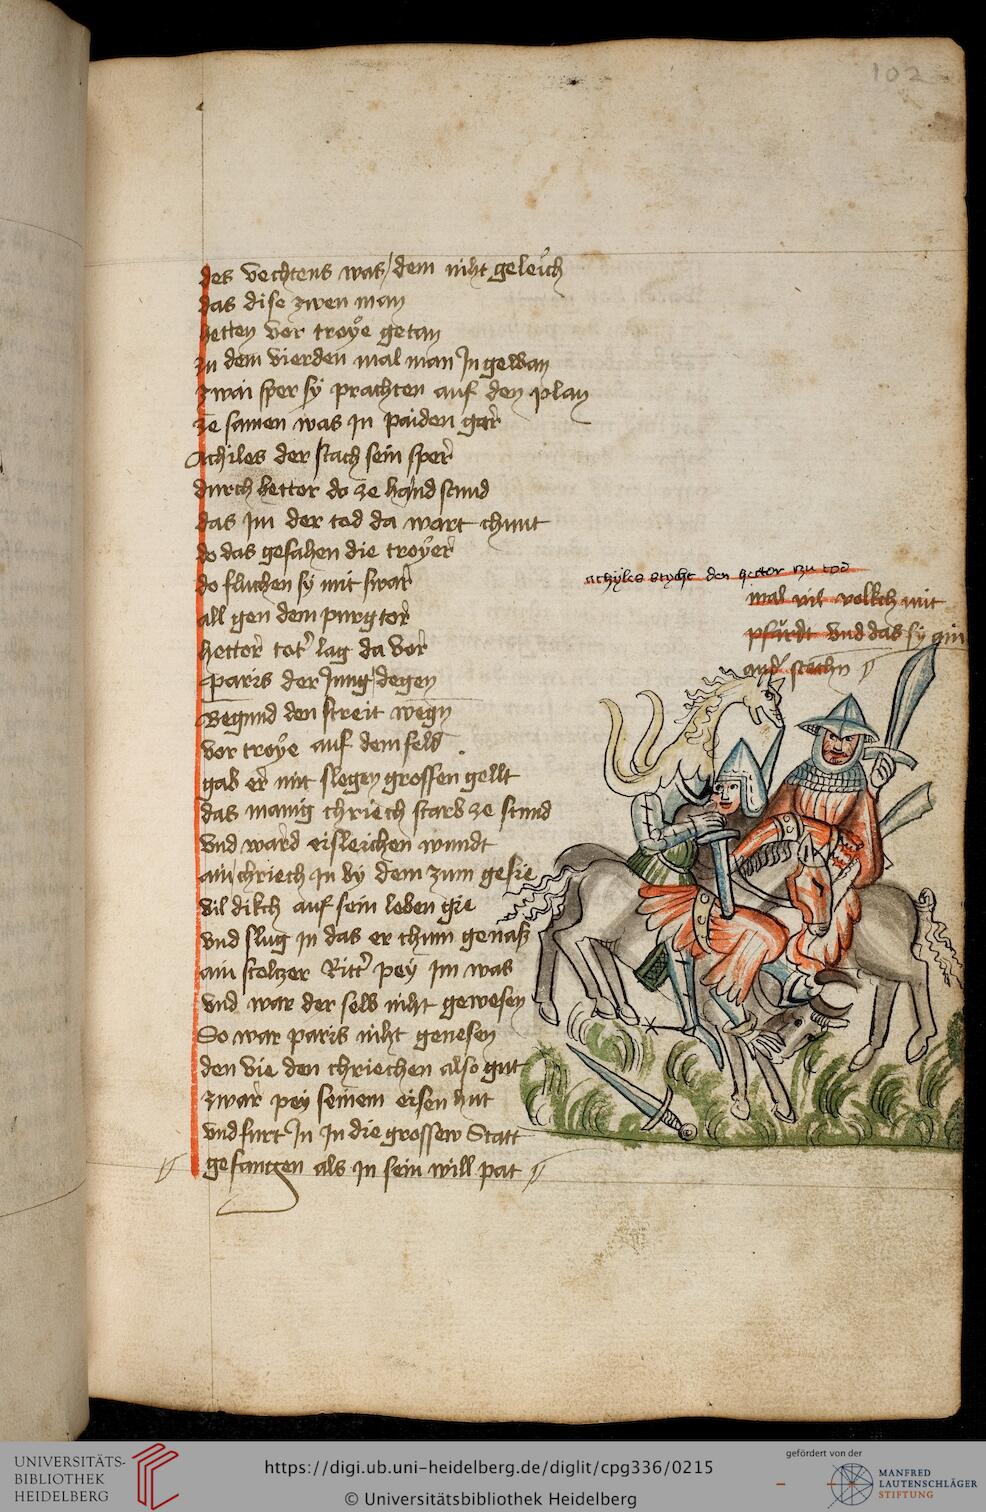 102
des vechtens was / dem niht geleich
das dise zwen man
hetten vor troye getan
zu dem vierden mal man In gewan
zwai sper sÿ prachten auf den plan
ze samen was Jn paiden ger
Achiles der stach sein sper
durch hector do ze hand stund
das Jm der tod da wart chunt
do das gesahen die troyer
do fluchen sÿ mit swar
all gen dem purgtor
hector tot lag da vor
Paris der Jung degen
Begund den streit wegn
vor troye auf dem feld
gab er mit slegen grossen gellt
das manig chriech starb ze stund
vnd ward eisleichen wundt
ain chriech Jn bÿ dem zum gefie
vil dikch auf sein leben gie
vnd slug Jn das er chum genaß
ain stolczer Ritter peÿ Jm was
vnd war der selb niht gewesen
So war paris niht genesen
den vie den chriechen also gut
zwar peÿ seinem eisenhut
vnd furt Jn Jn die grossew Statt
gefangen als Jn sein will pat
achyles stycht den hector zu tod
mal vil volkch mit
pfärdt vnd das sÿ ain
ander stechn
UNIVERSITÄTS-
BIBLIOTHEK
HEIDELBERG
https://digi.ub.uni-heidelberg.de/diglit/cpg336/0215
© Universitätsbibliothek Heidelberg
gefördert von der
MANFRED
LAUTENSCHLÄGER
STIFTUNG